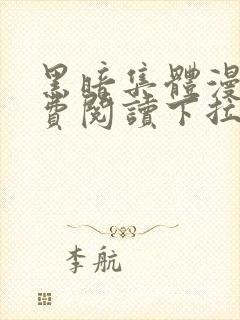 黑暗集體漫
費閱讀下拉
李航